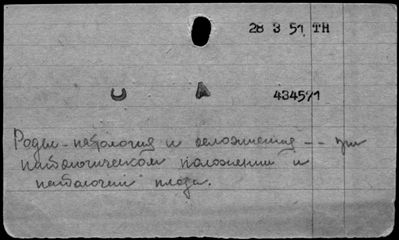 28 3 57 TH
U A
434571
Роды - патология и осложнения -- при
патологическом положении и
патологии плода.